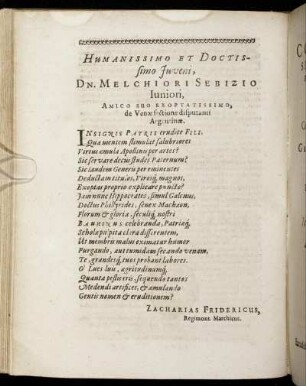 HUMANISSIMO ET DOCTIS-
simo Juveni,
DN. MELCHIORI SEBIZIO
Iuniori,
AMICO SUO EXOPTATISSIMO,
de Venæsectione disputanti
Argentinæ.
INSIGNIS PATRIS erudite FILI,
Qua mentem stimulat salubriores
Virtus æmula Apollinis per artes?
Sic servare decus studes Paternum?
Sic tandem Generis per eminentes
Deductam titulos, , magnos,
Exoptas proprio explicare puncto?
Jam nunc Hippocrates, simul Galenus,
Doctus Phillyrides, senex Machaon,
Florum & gloria, seculiq́, nostri
BAUHINUS celebrandus, Patriq́,
Schola suspicit ora differentem,
Ut membris malus eximatur humor
Purgando, aut tumidam secando venam.
Te, grandesq́, tuos probant labores.
O Lues luis, ægritudinumq́,
Quanta pestis eris, sequendo tantos
Medendi artifices, & æmulando
Gentis nomen & eruditionem?
ZACHARIAS FRIDERICUS,
Regimont. Marchicus.